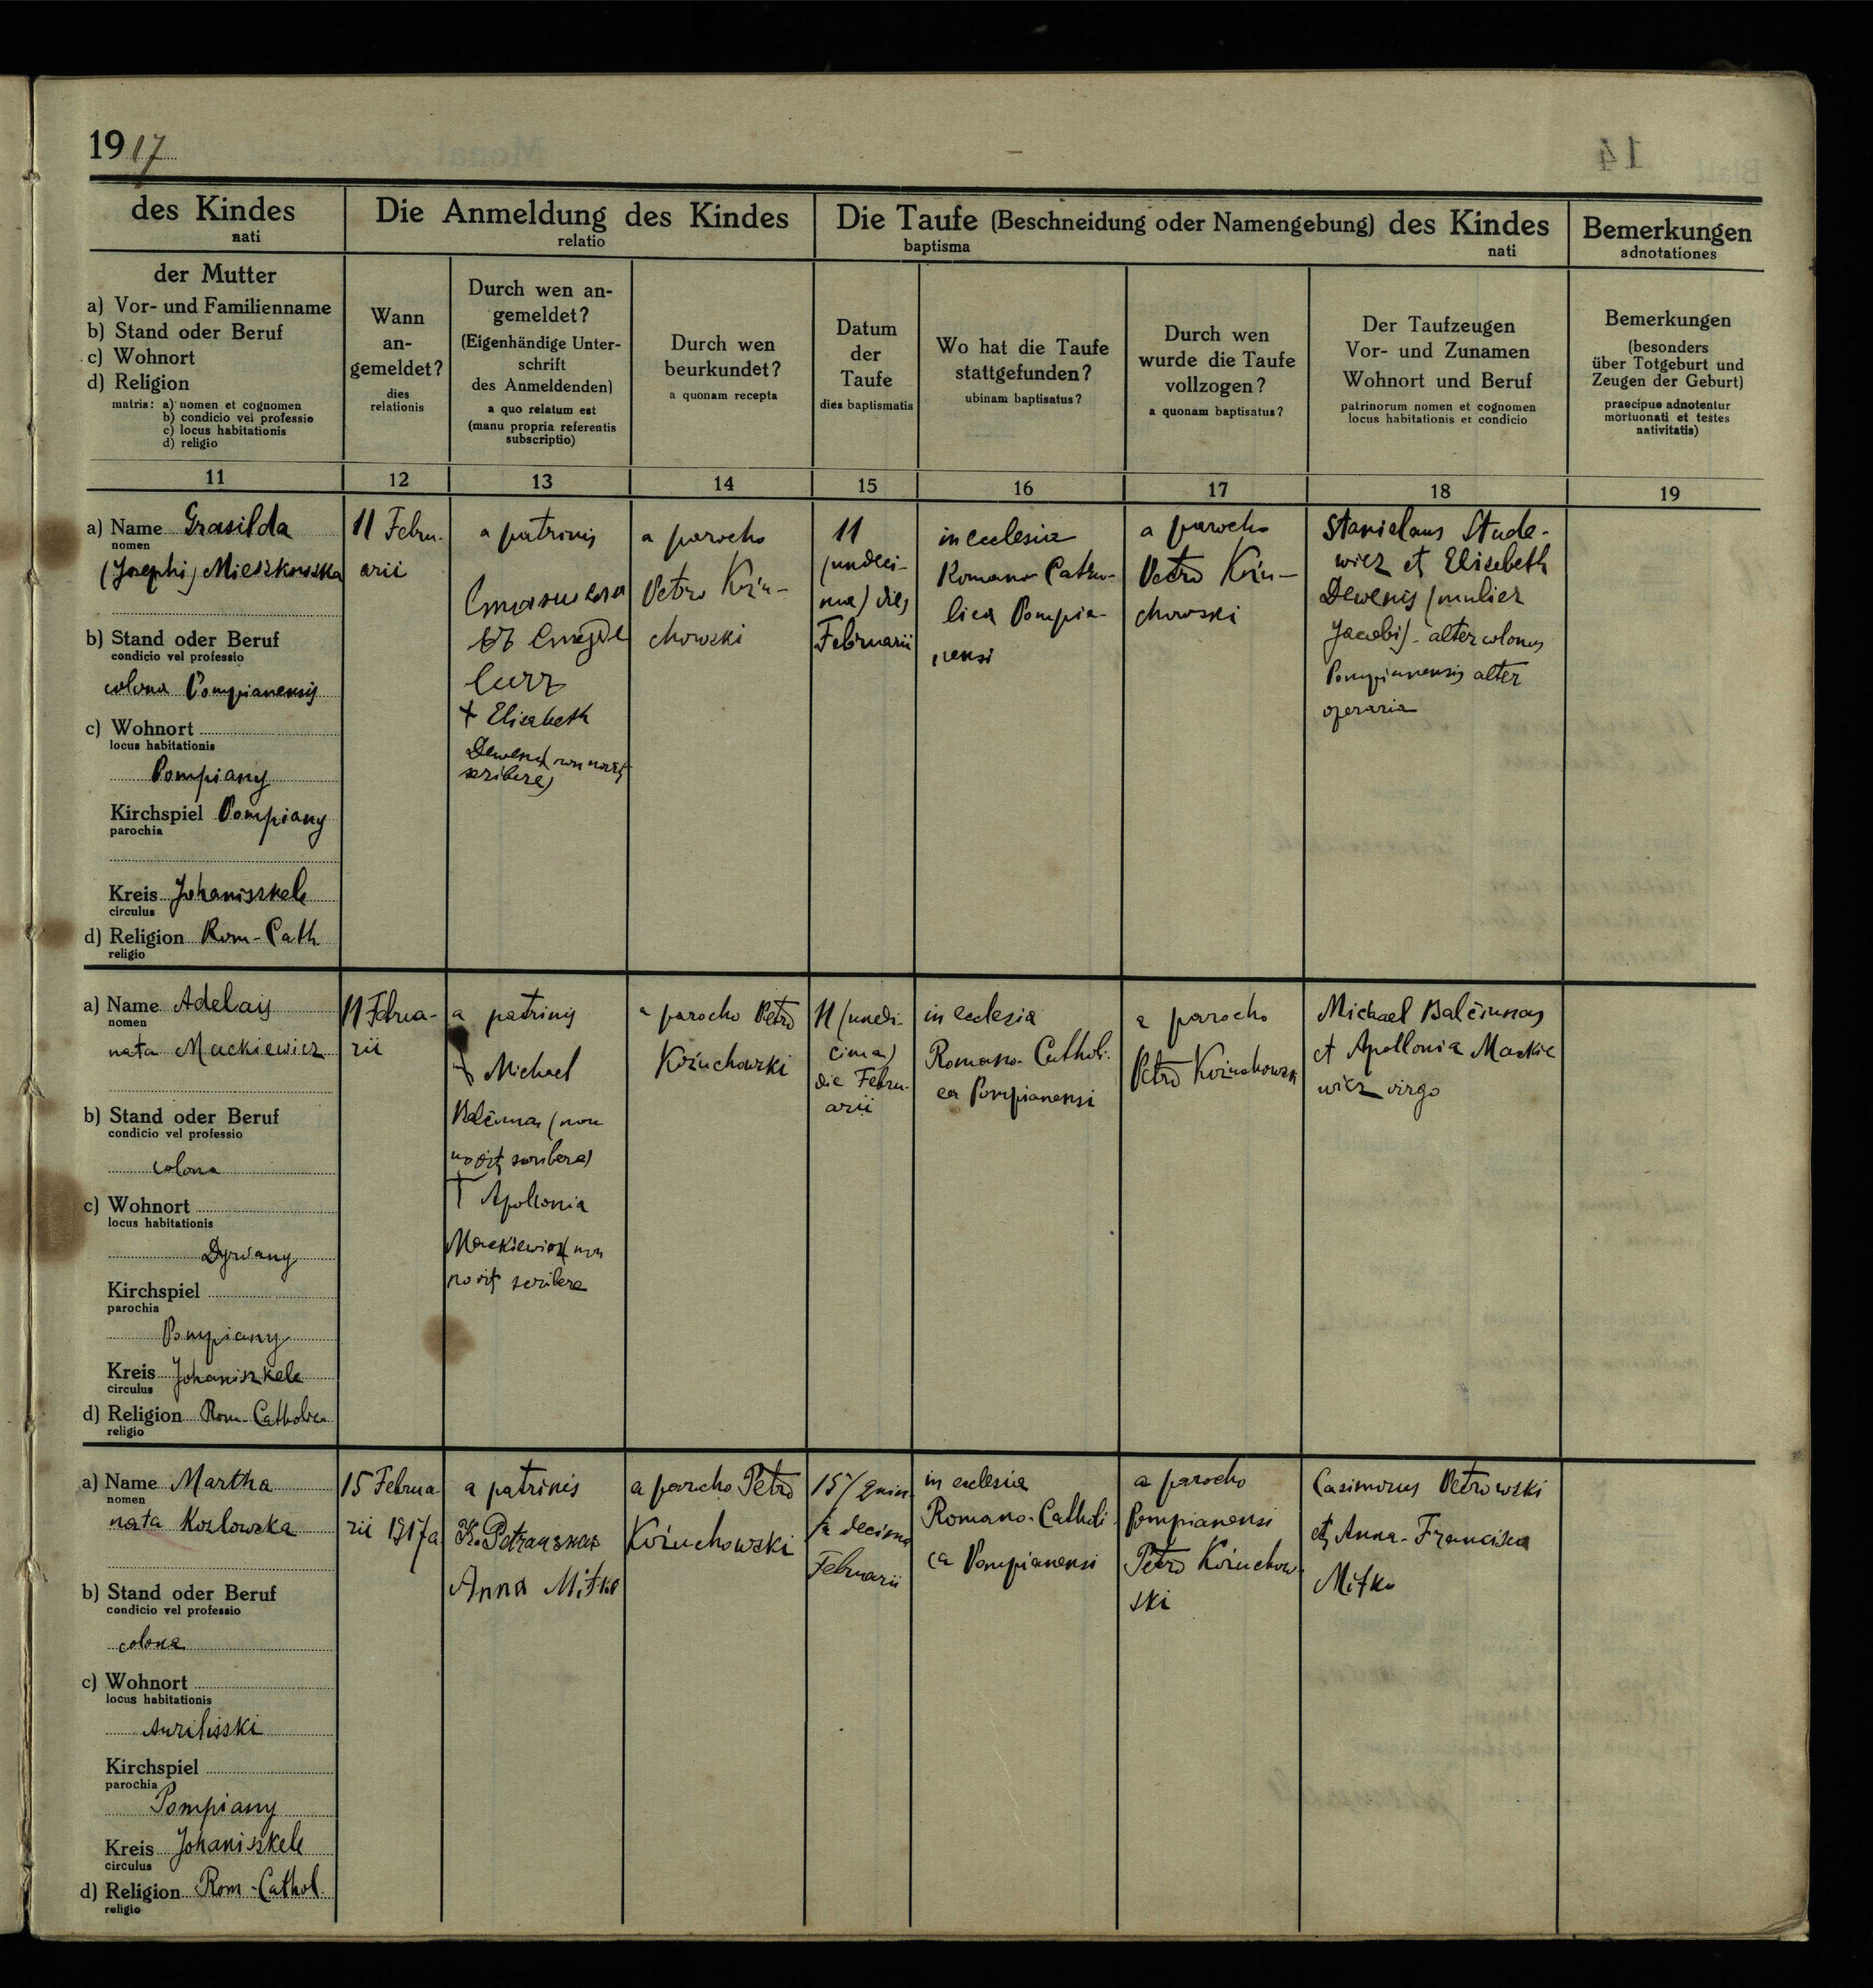 1917
14
des Kindes
nati
Die Anmeldung des Kindes
relatio
Die Taufe (Beschneidung oder Namengebung) des Kindes
baptisma nati
Bemerkungen
adnotationes
der Mutter
a) Vor- und Familienname
b) Stand oder Beruf
c) Wohnort
d) Religion
matris: a) nomen et cognomen
b) condicio vel professio
c) locus habitationis
d) religio
Wann
an-
gemeldet?
dies
relationis
Durch wen an-
gemeldet?
(Eigenhändige Unter-
schrift
des Anmeldenden)
a quo relatum est
(manu propria referentis
subscriptio)
Durch wen
beurkundet?
a quonam recepta
Datum
der
Taufe
dies baptismatis
Wo hat die Taufe
stattgefunden?
ubinam baptisatus?
Durch wen
wurde die Taufe
vollzogen?
a quonam baptisatus?
Der Taufzeugen
Vor- und Zunamen
Wohnort und Beruf
patrinorum nomen et cognomen
locus habitationis et condicio
Bemerkungen
(besonders
über Totgeburt und
Zeugen der Geburt)
praecipue adnotentur
mortuonati et testes
nativitatis)
11 12 13 14 15 16 17 18 19
a) Name Grasilda
nomen
(Josephi) Mieszkowska
b) Stand oder Beruf
condicio vel professio
colona Pompianensis
c) Wohnort
locus habitationis
Pompiany
Kirchspiel Pompiany
parochia
Kreis Johaniszkele
circulus
d) Religion Rom-Cath
religio
11 Febru-
arii
a patrinis
+ Elisabeth
Dewenis (non novit
scribere)
a parocho
Petro Kożu-
chowski
11
(undeci-
ma) dies
Februarii
in ecclesia
Romano-Catho-
lica Pompia-
nensi
a parocho
Petro Kożu-
chowski
Stanislaus Stude-
wicz et Elisebeth
Dewenis (mulier
Jacobi) - alter colonus
Pompianensis alter
operaria
a) Name Adelais
nomen
nata Mackiewicz
b) Stand oder Beruf
condicio vel professio
colona
c) Wohnort
locus habitationis
Dyrwany
Kirchspiel
parochia
Pompiany
Kreis Johaniszkele
circulus
d) Religion Rom-Catholica
religio
11 Februa-
rii
a patrinis
+ Michael
Balčiunas (non
novit scribere)
+ Apollonia
Mackiewicz (non
novit scribere
a parocho Petro
Kożuchowski
11 (unde-
cima)
die Febru-
arii
in ecclesia
Romano-Catholi-
ca Pompianensi
a parocho
Petro Kożuchowski
Michael Balčiunas
et Apollonia Mackie
wicz virgo
a) Name Martha
nomen
nata Kozlowska
b) Stand oder Beruf
condicio vel professio
colona
c) Wohnort
locus habitationis
Kirchspiel
parochia
Pompiany
Kreis Johaniszkele
circulus
d) Religion Rom-Cathol.
religio
15 Februa-
rii 1917a
a patrinis
K. Petrauskas
Anna Mitke
a parocho Petro
Kożuchowski
15 (quin
ta decima
Februarii
in ecclesia
Romano-Catholi-
ca Pompianensi
a parocho
Pompianensi
Petro Kożuchow-
ski
Casimirus Petrowski
et Anna-Francisca
Mitko